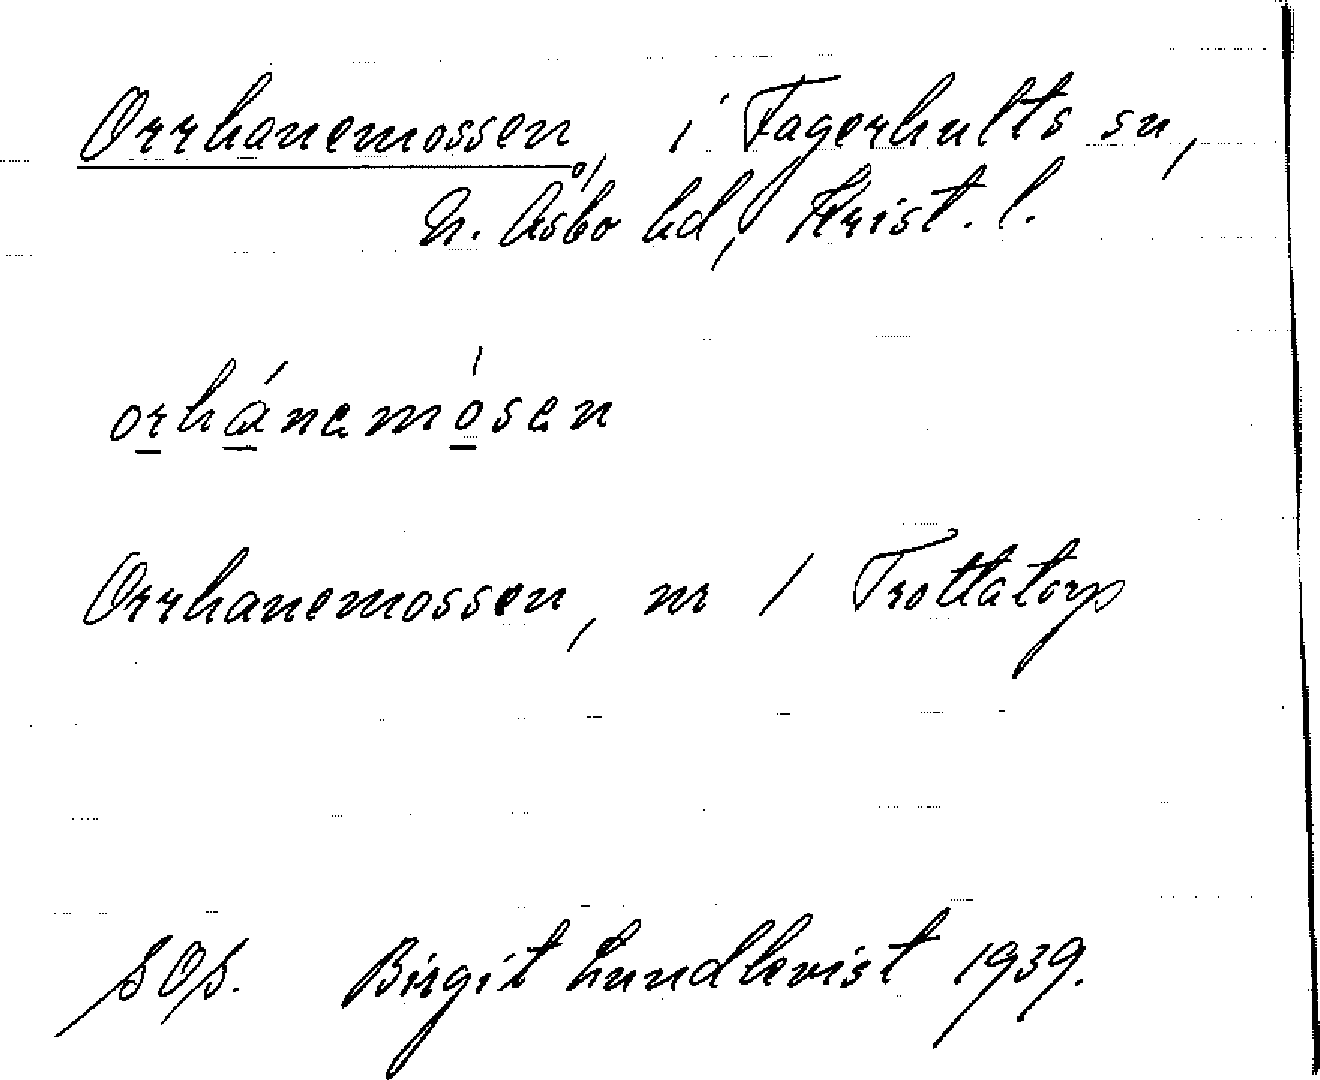 Orrhanemossen, i Fagerhults sn,
N. Åsbo hd, Krist. l.
orhánamósan
Orrhanemossen, nr 1 Trottatorp
SOS. Birgit Lundkvist 1939.